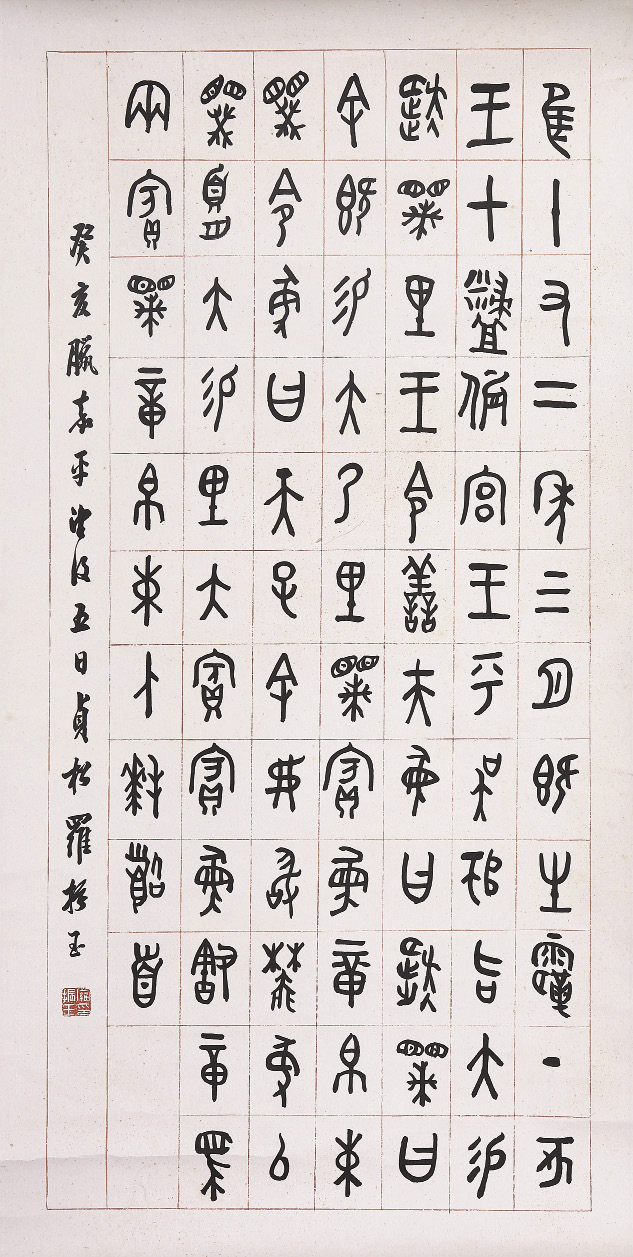 隹十又二年三月既生霸丁亥
王才侲宮王乎吳師召大易
趞睽里王令善夫豖曰趞睽曰
余既易大乃里睽賓豖章帛束
睽令豖曰天子余弗敢豖以
睽大易里大賓賓豖章馬
兩賓睽章帛束拜稽首
癸亥臘嘉平望後五日貞松羅振玉